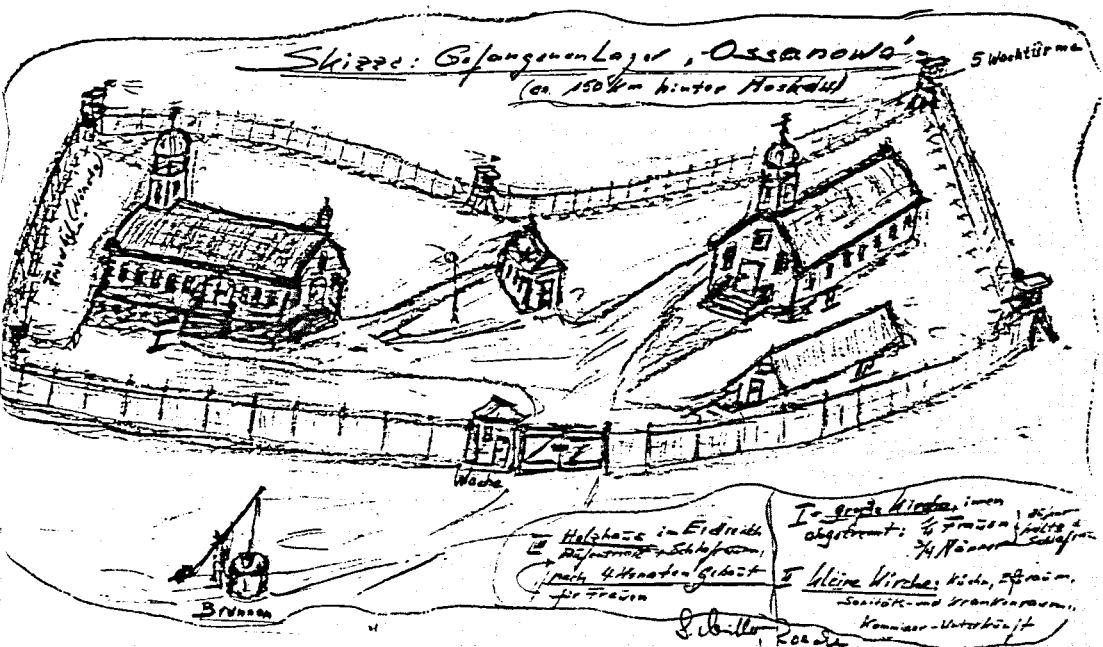 Skizze: Gefangenenlager „Ossanowo“
(ca. 150 km hinter Moskau)
5 Wachtürme
I
II
III
Wache
Brunnen
III Holzhaus im Erdreich
Aufenthalt + Schlafraum,
nach 4 Monaten gebaut
für Frauen
I = große Kirche, innen
abgetrennt: 1/4 Frauen
3/4 Männer
II kleine Kirche: Küche, Eßraum,
Sanitäts- und Krankenraum,
Kommissar-Unterkunft